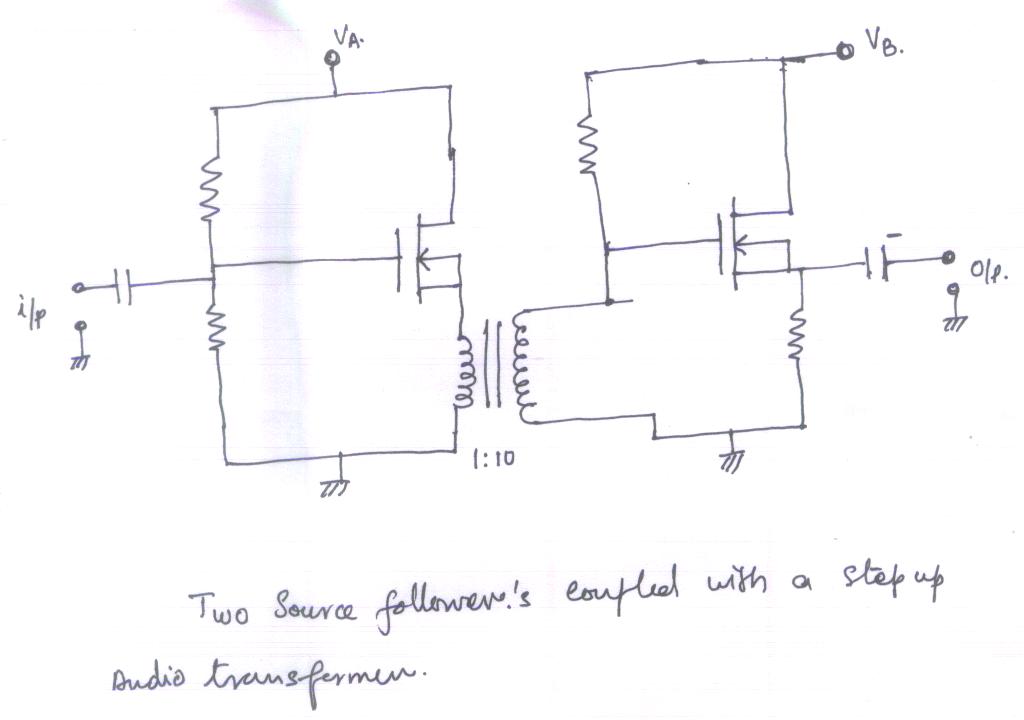 VA.
VB.
i/p
O/p.
1:10
Two Source follower.'s coupled with a step up
Audio transformer.